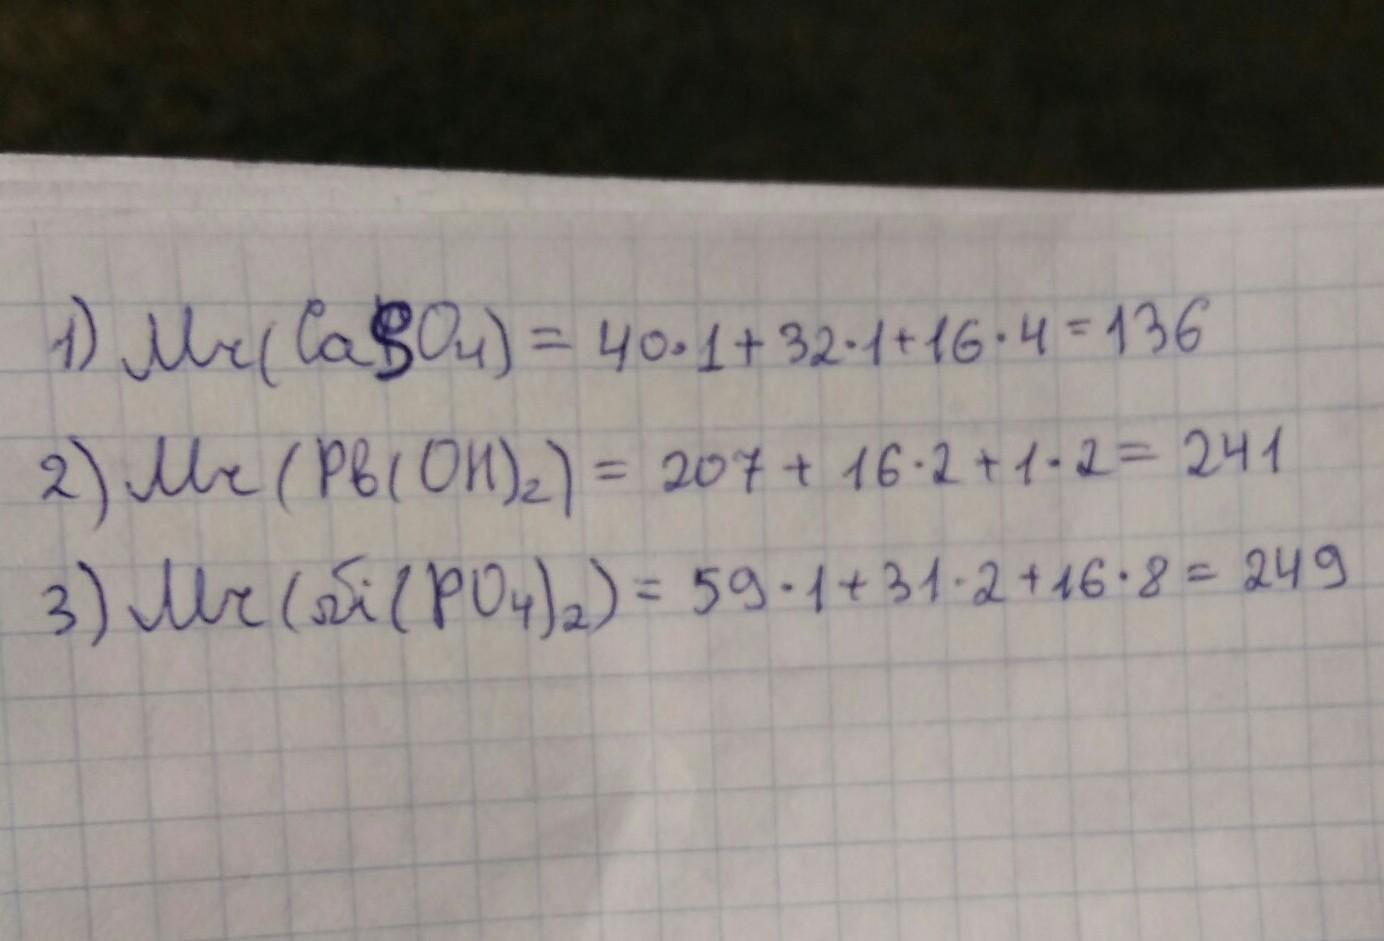 1) Mr(CaSO₄) = 40·1+32·1+16·4=136
2) Mr(Pb(OH)₂) = 207 + 16·2+1·2= 241
3) Mr(Ni(PO₄)₂) = 59·1+31·2+16·8= 249